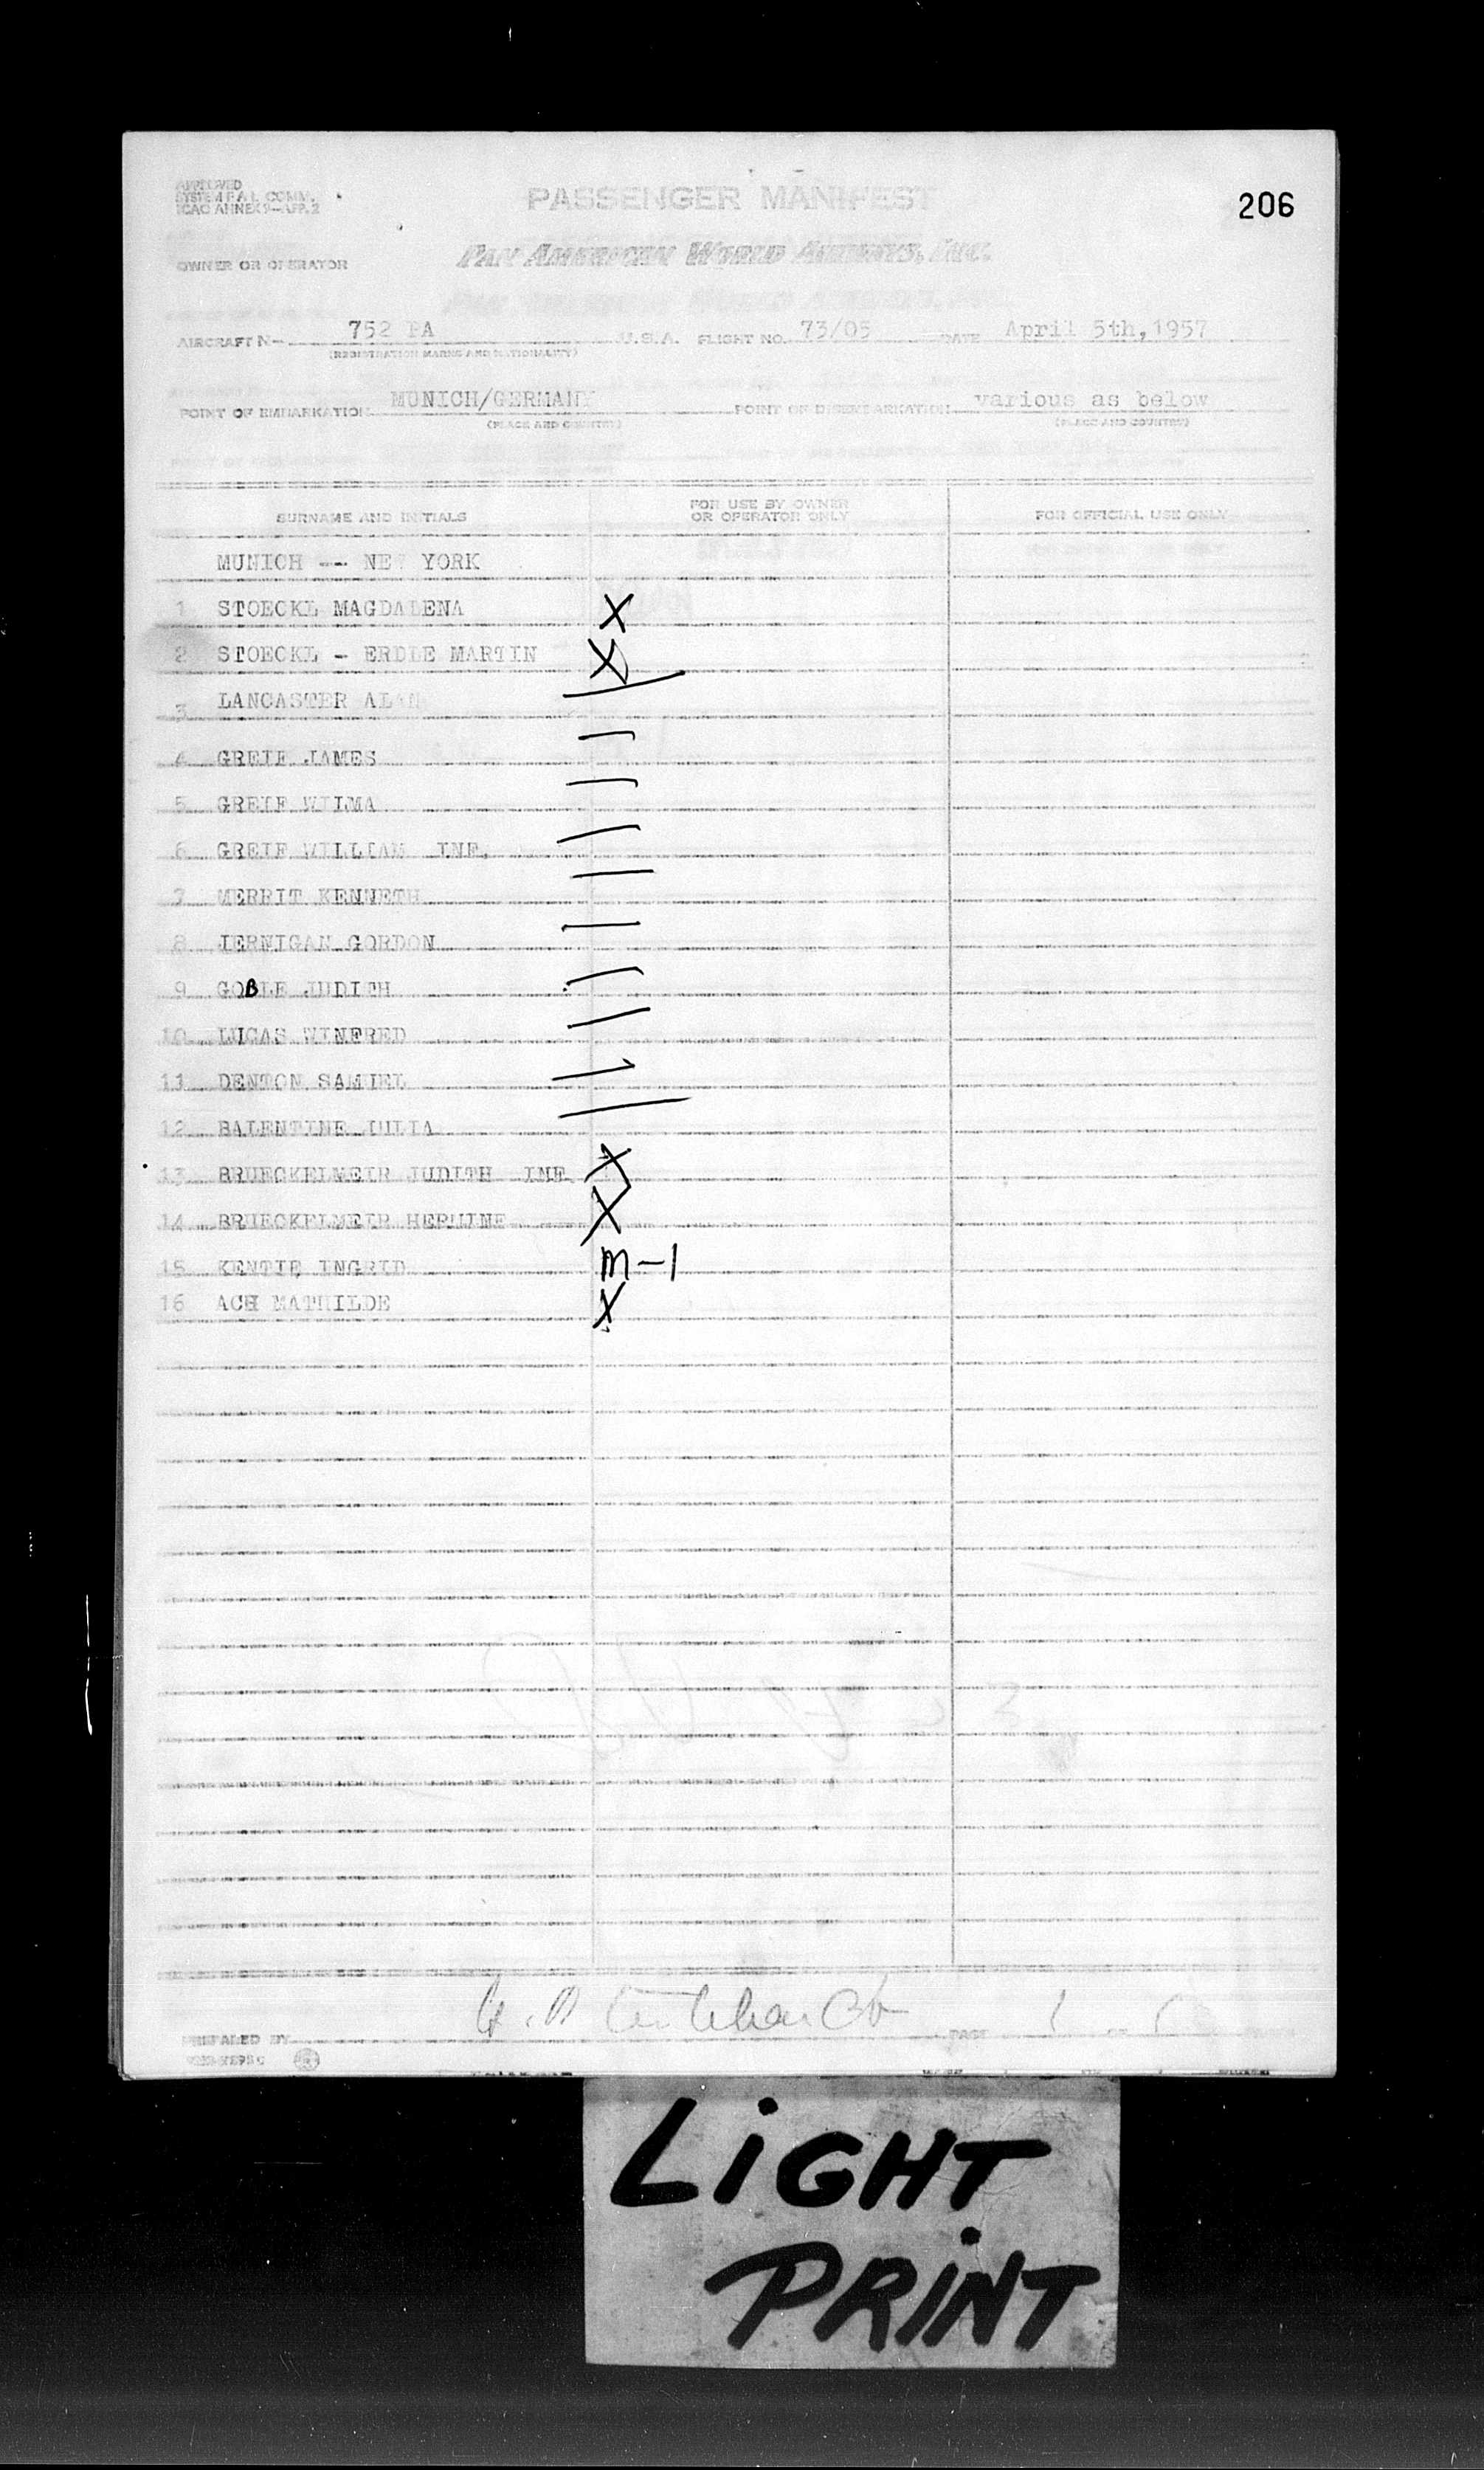 APPROVED
SYSTEM F.A.L. COMM.
ICAO ANNEX 9-APP. 2
PASSENGER MANIFEST
206
OWNER OR OPERATOR
PAN AMERICAN WORLD AIRWAYS, INC.
AIRCRAFT N- 752 PA U.S.A. FLIGHT NO. 73/05 DATE April 5th,1957
(REGISTRATION MARKS AND NATIONALITY)
POINT OF EMBARKATION MUNICH/GERMANY POINT OF DISEMBARKATION various as below
(PLACE AND COUNTRY) (PLACE AND COUNTRY)
SURNAME AND INITIALS FOR USE BY OWNER OR OPERATOR ONLY FOR OFFICIAL USE ONLY
MUNICH -- NEW YORK
1 STOECKL MAGDALENA X
2 STOECKL - ERDLE MARTIN X
3 LANCASTER ALAN
4 GREIF JAMES
5 GREIF WILMA
6 GREIF WILLIAM INF.
7 MERRIT KENNETH
8 JERNIGAN GORDON
9 GOBLE JUDITH
10 LUCAS WINFRED
11 DENTON SAMUEL
12 BALENTINE JULIA
13 BRUECKELMEIR JUDITH INF. X
14 BRUECKELMEIR HERMINE X
15 KENTIE INGRID M-1
16 ACH MATHILDE X
PREPARED BY PAGE 1 OF
LIGHT
PRINT